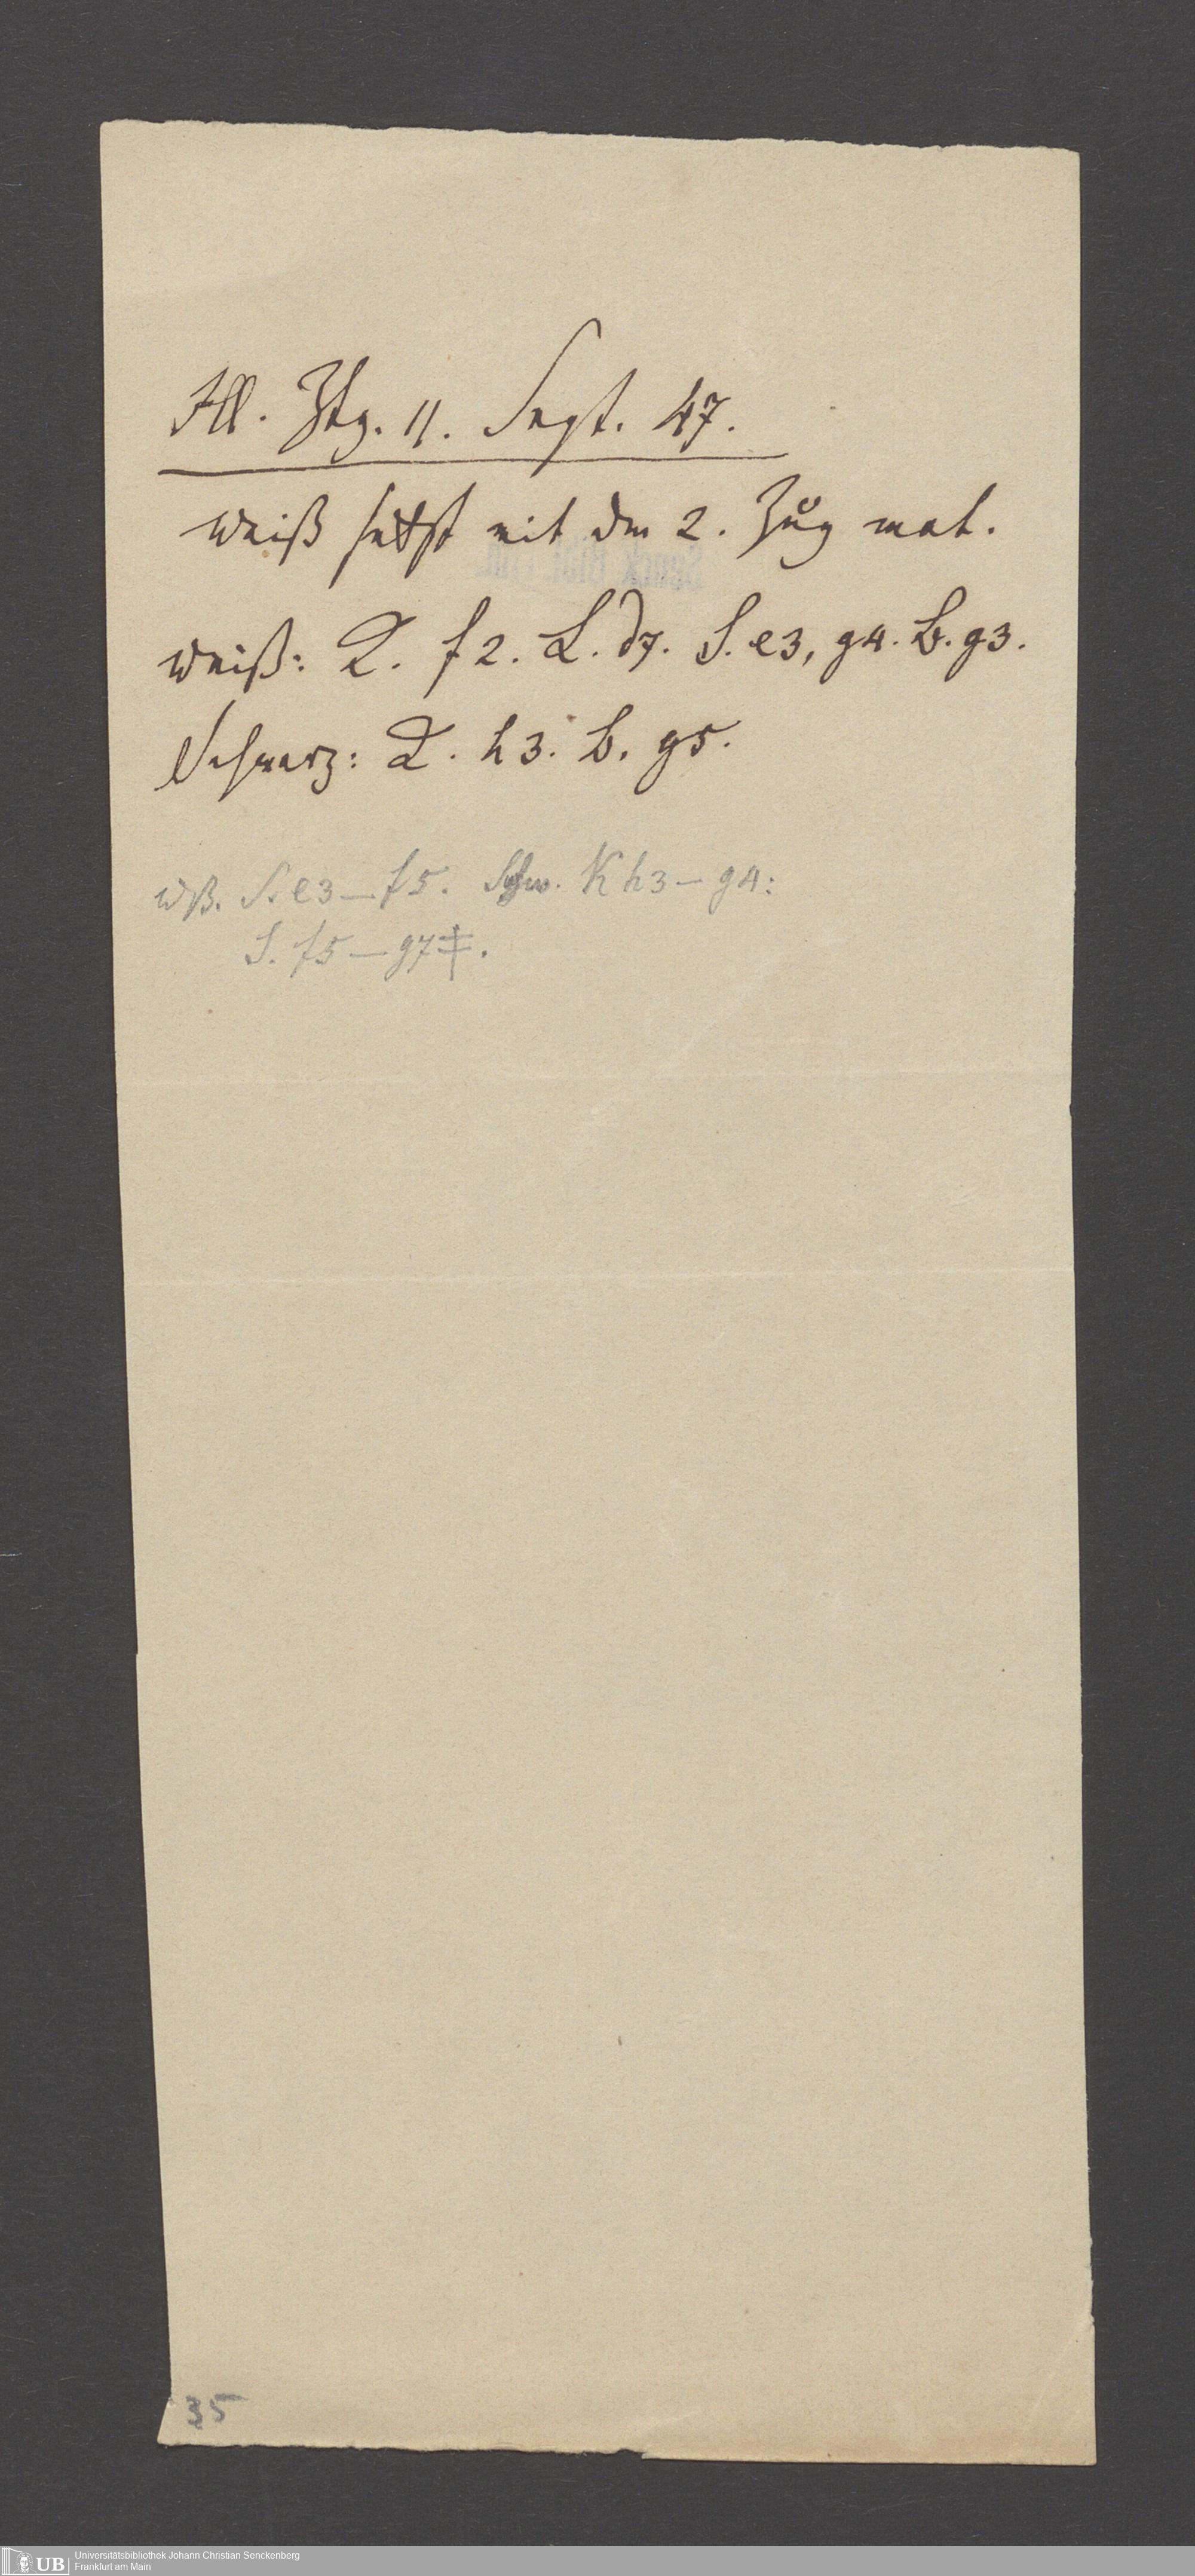 Ill. Ztg. 11. Sept. 47.
Weiß setzt mit dem 2. Zug mat.
Weiß: K. f2. L. d7. S. e3, g4. B. g3.
Schwarz: K. h3. B. g5.
Wß. S. e3 – f5. Schw. K h3 – g4:
S. f5 – g7 ‡.
35
UB Universitätsbibliothek Johann Christian Senckenberg
Frankfurt am Main